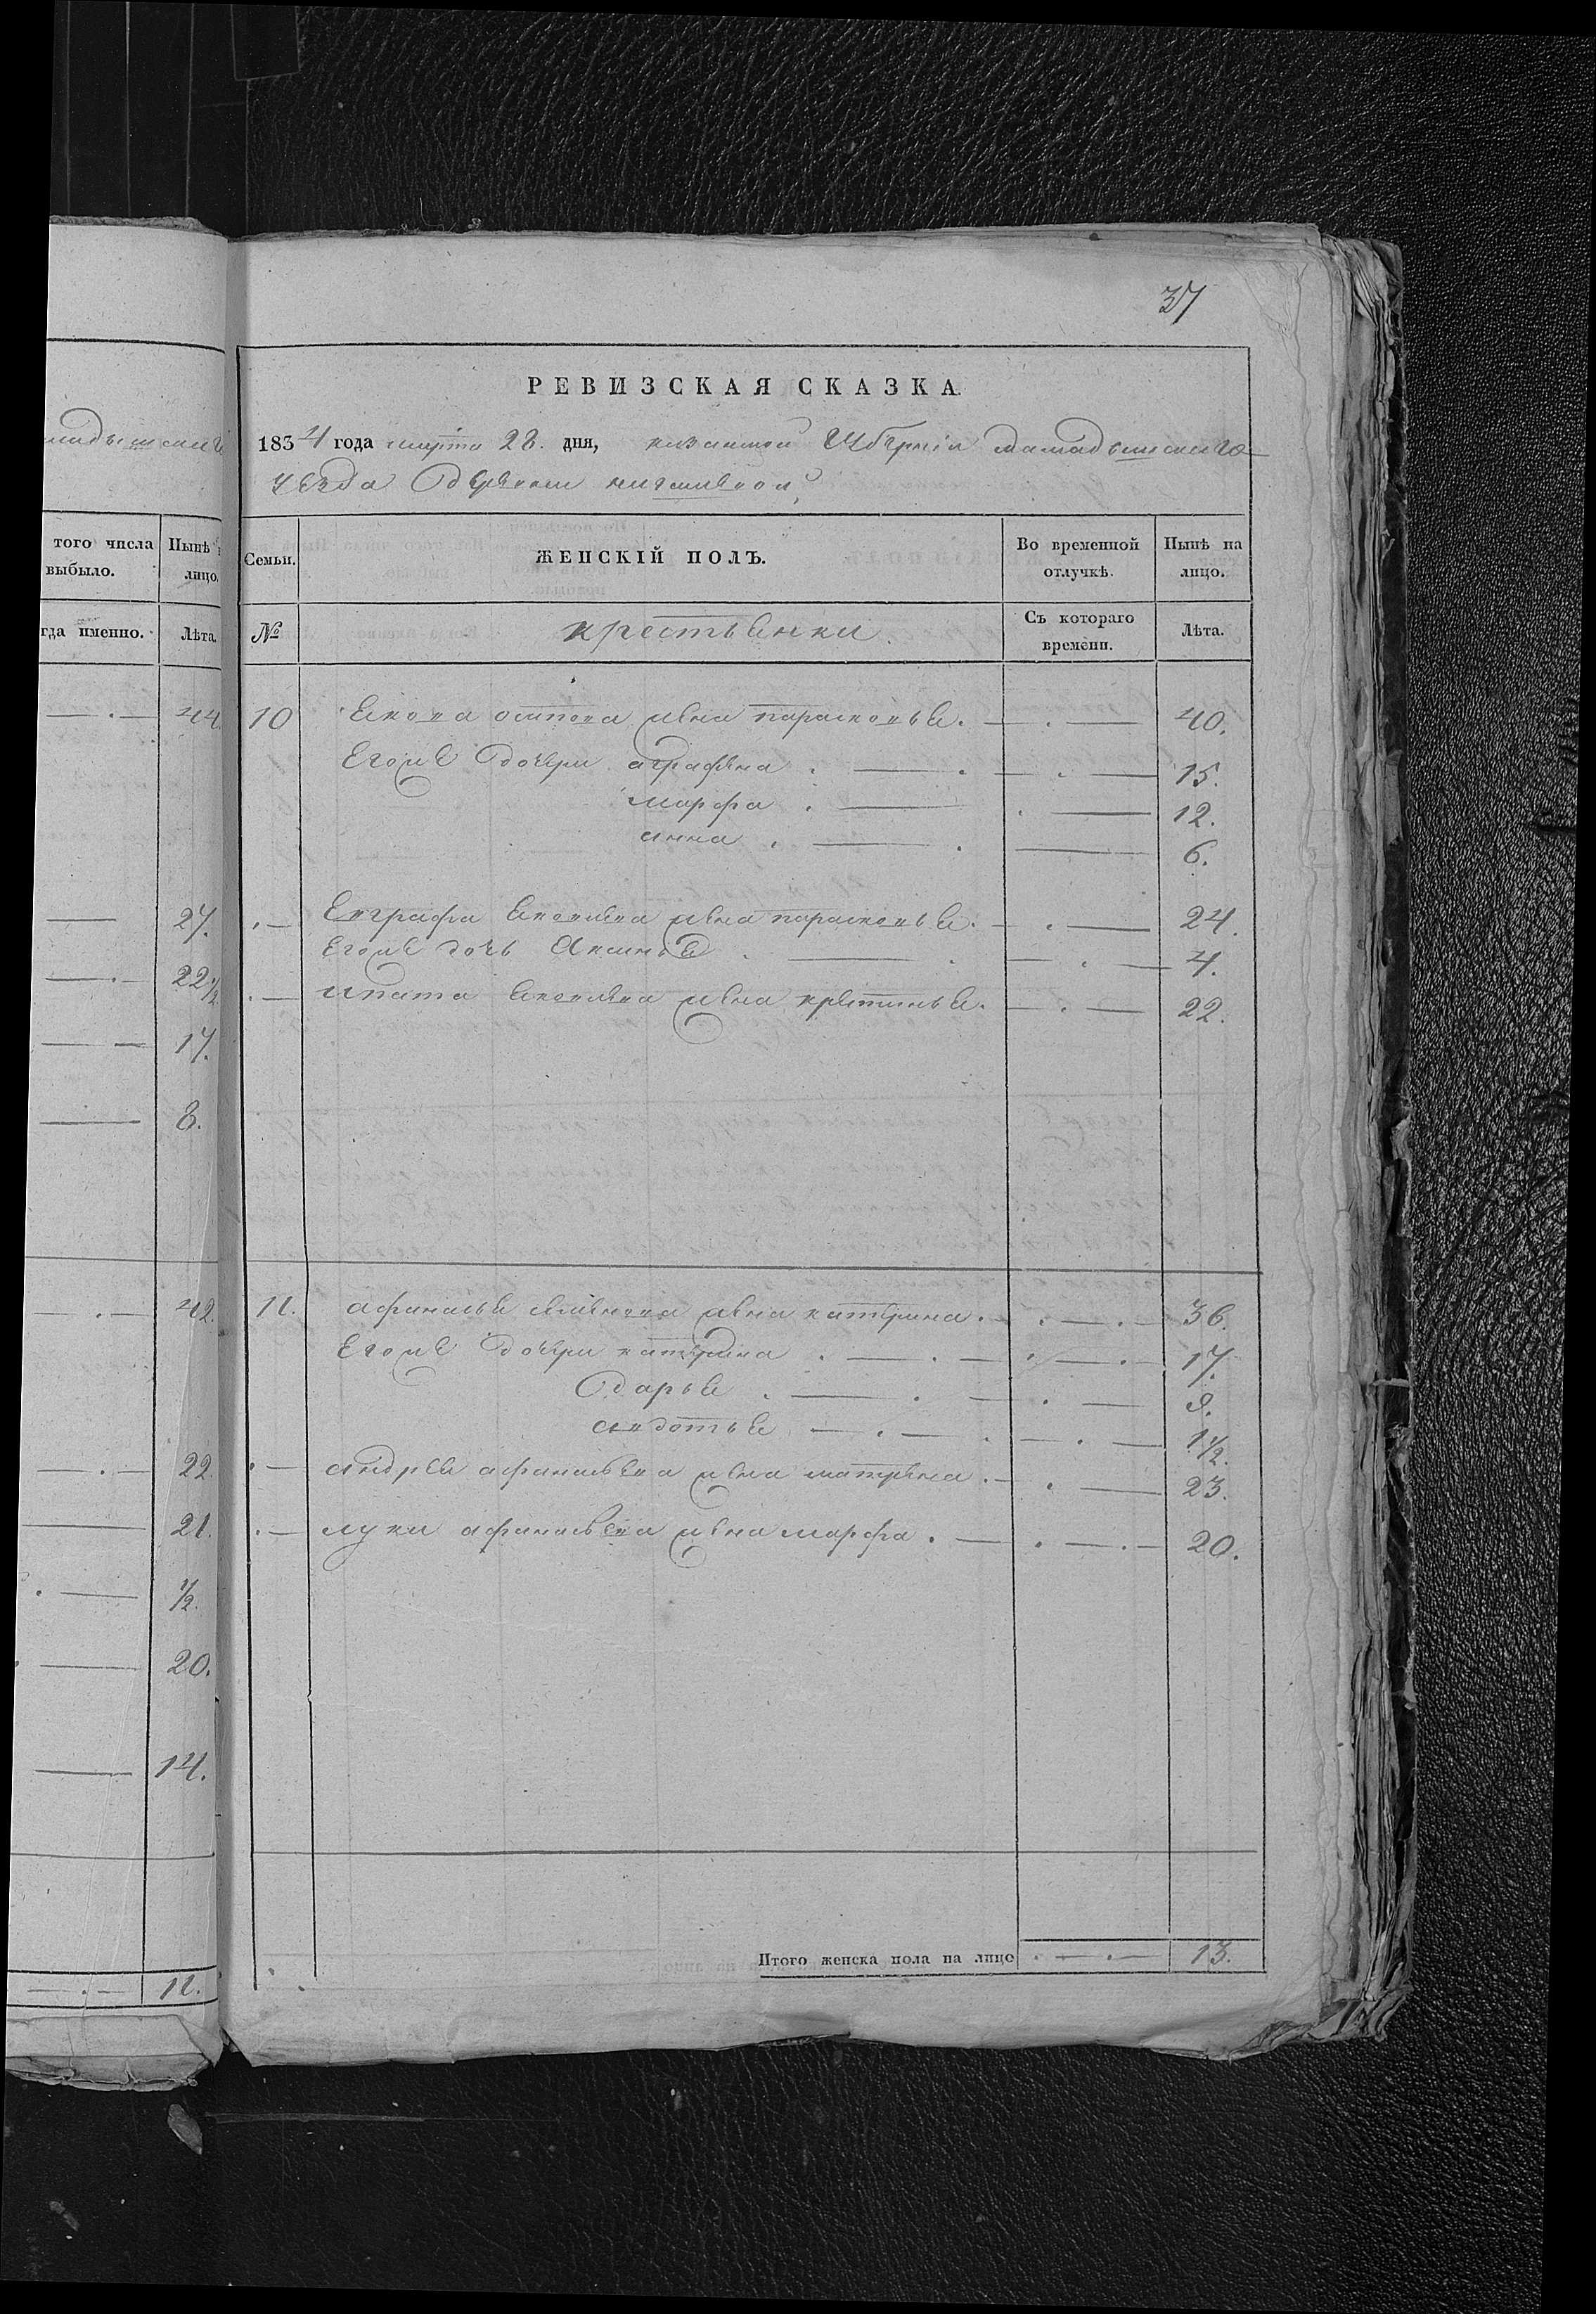 37
РЕВИЗСКАЯ СКАЗКА.
1834 года марта 28. дня, казанской Губерніи мамадышскаго
уезда Деревни
того числа выбыло.
Нынѣ
лицо.
гда именно.
Лѣта.
44.
27.
22 1/2
17.
8.
42.
22.
21.
1/2.
20.
14.
11.
Семьи. ЖЕНСКІЙ ПОЛЪ. Во временной отлучкѣ. Нынѣ на лицо.
№ крестьянки. Съ котораго времени. Лѣта.
10 Якова осипова жена парасковья. 40.
Егоже дочери аграфена. 15.
марфа. 12.
анна. 6.
Евграфа яковлева жена парасковья. 24.
Егоже дочь Аксинья. 4.
ипата яковлева жена крестинья. 22.
11. афанасья жена катерина. 36.
Егоже дочери катерина. 17.
Дарья. 9.
авдотья 1 1/2.
андрея афанасьева жена матрена. 23.
луки афанасьева жена марфа. 20.
Итого женска пола на лицо 13.